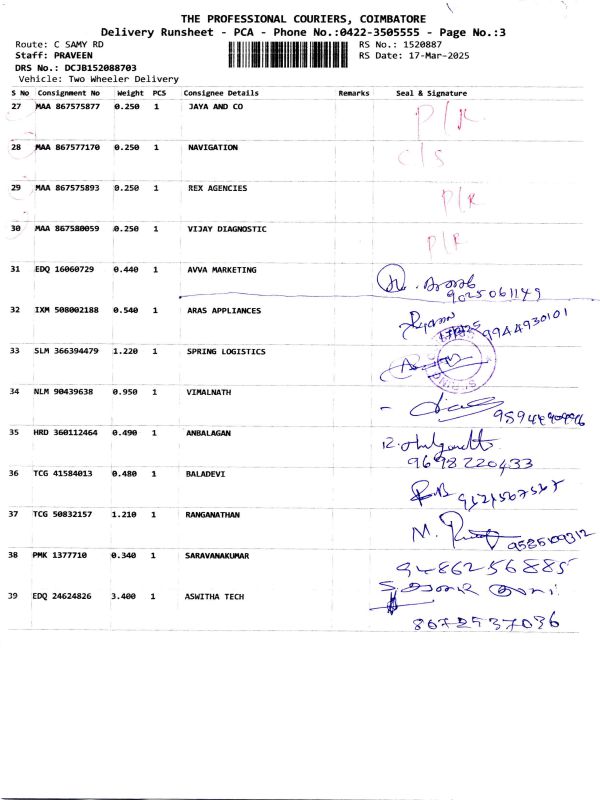 THE PROFESSIONAL COURIERS, COIMBATORE
Delivery Runsheet - PCA - Phone No.:0422-3505555 - Page No.:3
Route: C SAMY RD RS No.: 1520887
Staff: PRAVEEN RS Date: 17-Mar-2025
DRS No.: DCJB152088703
Vehicle: Two Wheeler Delivery
S No Consignment No Weight PCS Consignee Details Remarks Seal & Signature
27 MAA 867575877 0.250 1 JAYA AND CO P/R
28 MAA 867577170 0.250 1 NAVIGATION C/S
29 MAA 867575893 0.250 1 REX AGENCIES P/R
30 MAA 867580059 0.250 1 VIJAY DIAGNOSTIC P/R
31 EDQ 16060729 0.440 1 AVVA MARKETING
9025061149
32 IXM 508002188 0.540 1 ARAS APPLIANCES
9944930101
33 SLM 366394479 1.220 1 SPRING LOGISTICS
34 NLM 90439638 0.950 1 VIMALNATH
35 HRD 360112464 0.490 1 ANBALAGAN
9698220433
36 TCG 41584013 0.480 1 BALADEVI
37 TCG 50832157 1.210 1 RANGANATHAN M.
9585109312
38 PMK 1377710 0.340 1 SARAVANAKUMAR 9486256885
39 EDQ 24624826 3.400 1 ASWITHA TECH
8672537036